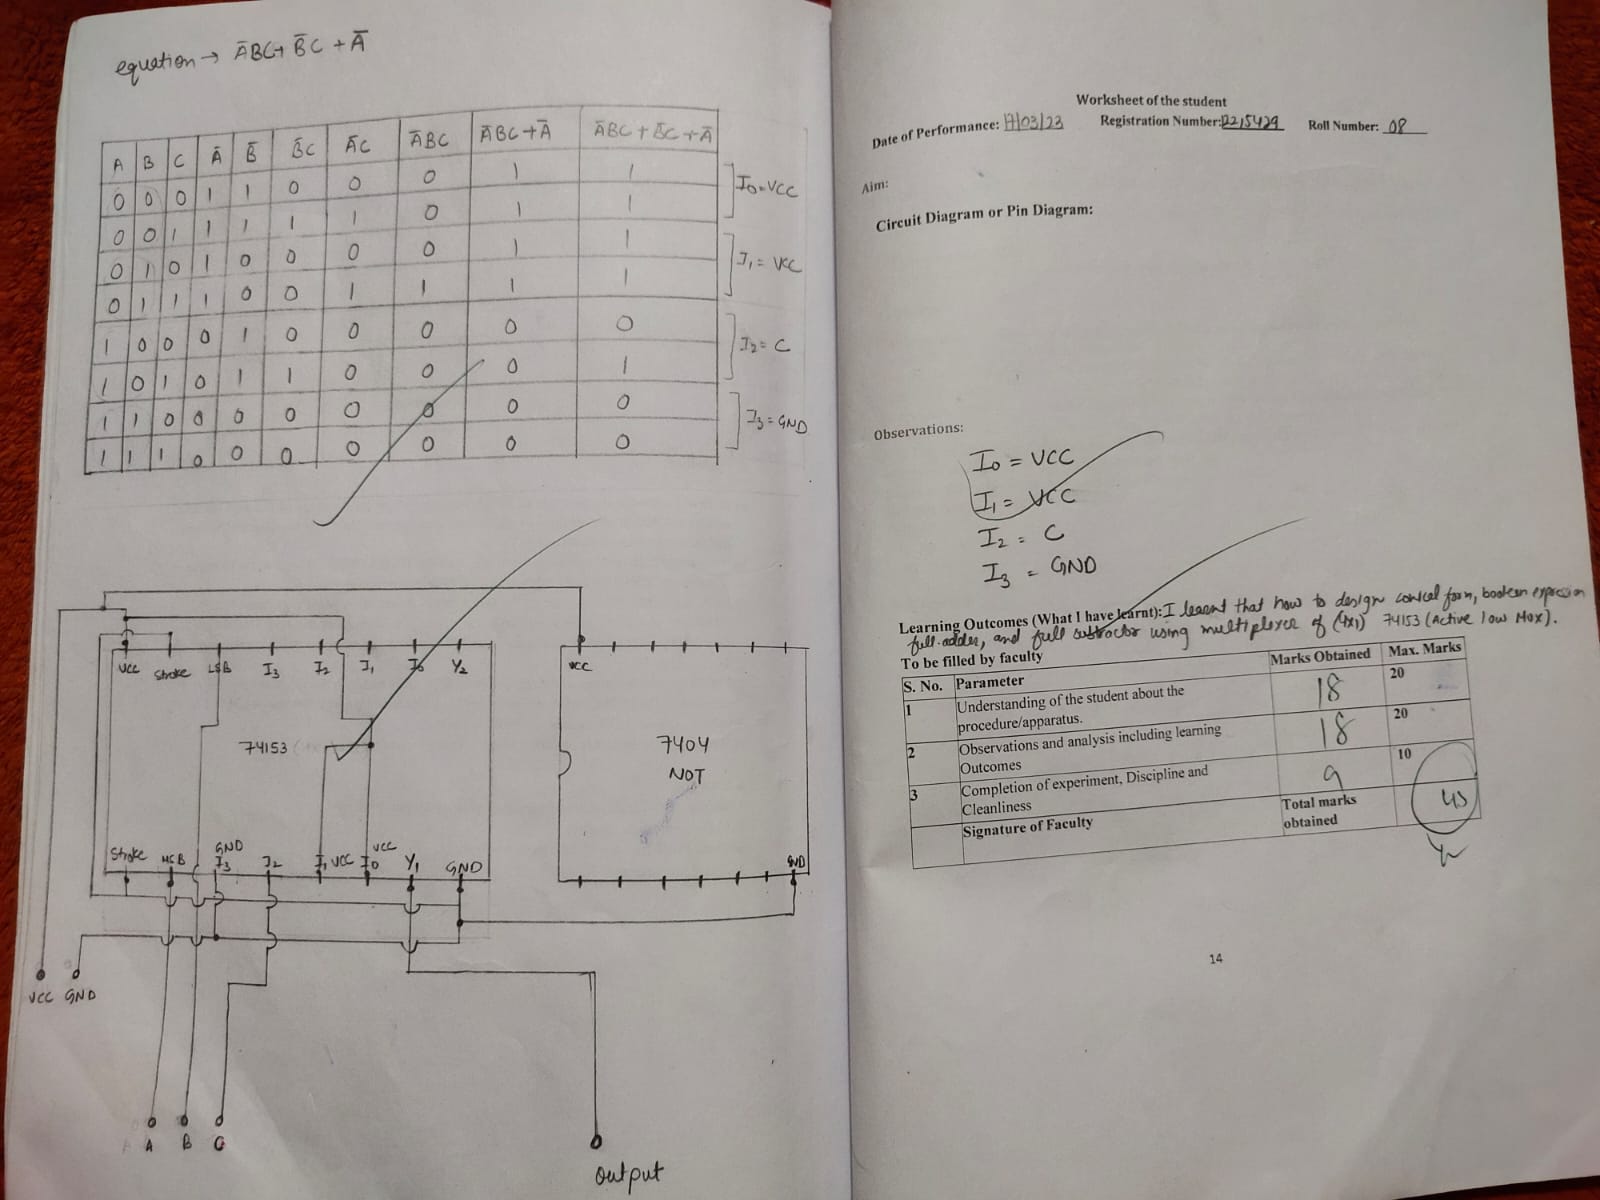 equation → ĀBC + B̄C + Ā
A B C Ā B̄ B̄C ĀC ĀBC ĀBC+Ā ĀBC + B̄C + Ā
0 0 0 1 1 0 0 0 1 1
0 0 1 1 1 1 1 0 1 1
0 1 0 1 0 0 0 0 1 1
0 1 1 1 0 0 1 1 1 1
1 0 0 0 1 0 0 0 0 0
1 0 1 0 1 1 0 0 0 1
1 1 0 0 0 0 0 0 0 0
1 1 1 0 0 0 0 0 0 0
I0=VCC
I1= VCC
I2= C
I3=GND
VCC Stroke LSB I3 I2 I1 I0 Y2
74153
Stroke MSB GND I3 I2 I1 VCC I0 VCC Y1 GND
VCC
7404
NOT
GND
VCC GND
A B C
output
Worksheet of the student
Date of Performance: 17/03/23 Registration Number: Roll Number: 08
Aim:
Circuit Diagram or Pin Diagram:
Observations:
I0 = VCC
I1 = VCC
I2 = C
I3 = GND
Learning Outcomes (What I have learnt): I learnt that how to design form, boolean expression
full-adder, and full subtractor using multiplexer of (4x1) 74153 (Active low Mux).
To be filled by faculty
S. No. Parameter Marks Obtained Max. Marks
1 Understanding of the student about the procedure/apparatus. 18 20
2 Observations and analysis including learning Outcomes 18 20
3 Completion of experiment, Discipline and Cleanliness 9 10
Signature of Faculty Total marks obtained 45
14